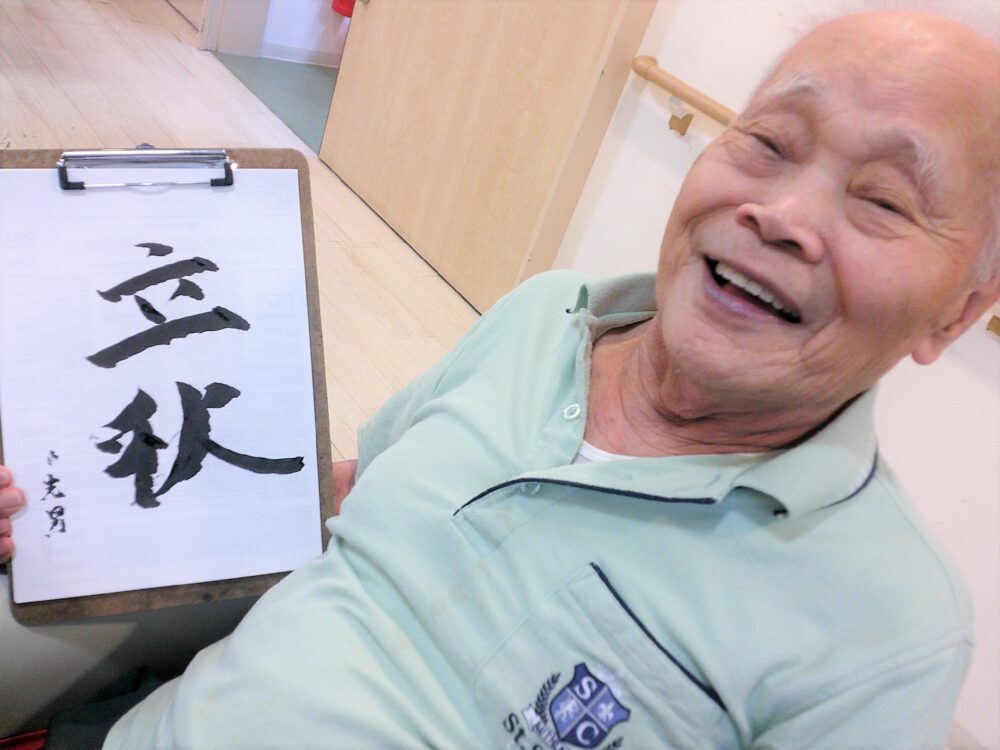 立秋
光男
S
C
St.